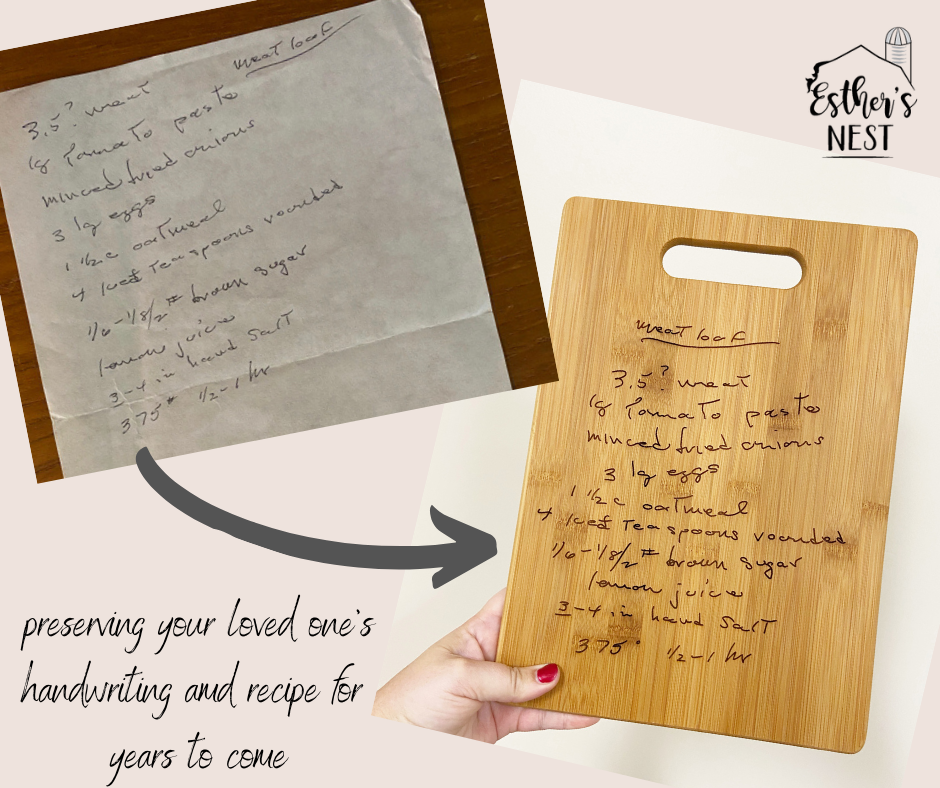 meat loaf
3.5? meat
lg Tomato paste
minced fried onions
3 lg eggs
1 1/2 c oatmeal
4 Teaspoons rounded
1/6 - 1/8/2 # brown sugar
lemon juice
3-4 in hand Salt
375° 1/2-1 hr
Esther's
NEST
meat loaf
3.5? meat
lg Tomato paste
minced fried onions
3 lg eggs
1 1/2 c oatmeal
4 Teaspoons rounded
1/6 - 1/8/2 # brown sugar
lemon juice
3-4 in hand Salt
375° 1/2-1 hr
preserving your loved one's
handwriting and recipe for
years to come